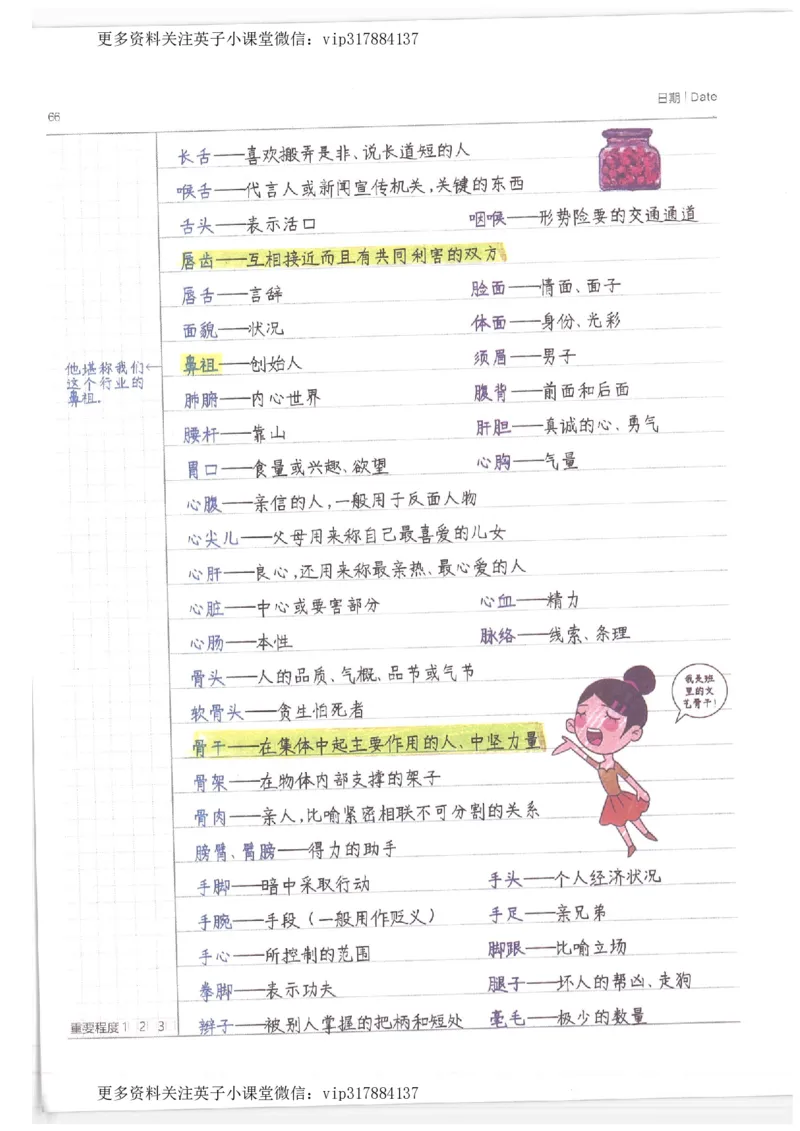 更多资料关注英子小课堂微信：vip317884137
日期 | Date
66
长舌——喜欢搬弄是非、说长道短的人
喉舌——代言人或新闻宣传机关,关键的东西
舌头——表示活口 咽喉——形势险要的交通通道
唇齿——互相接近而且有共同利害的双方
唇舌——言辞 脸面——情面、面子
面貌——状况 体面——身份、光彩
鼻祖——创始人 须眉——男子
他堪称我们←
这个行业的
鼻祖。
肺腑——内心世界 腹背——前面和后面
腰杆——靠山 肝胆——真诚的心、勇气
胃口——食量或兴趣、欲望 心胸——气量
心腹——亲信的人,一般用于反面人物
心尖儿——父母用来称自己最喜爱的儿女
心肝——良心,还用来称最亲热、最心爱的人
心脏——中心或要害部分 心血——精力
心肠——本性 脉络——线索、条理
骨头——人的品质、气概、品节或气节
软骨头——贪生怕死者
我是班
里的文
艺骨干!
骨干——在集体中起主要作用的人、中坚力量
骨架——在物体内部支撑的架子
骨肉——亲人,比喻紧密相联不可分割的关系
膀臂、臂膀——得力的助手
手脚——暗中采取行动 手头——个人经济状况
手腕——手段（一般用作贬义） 手足——亲兄弟
手心——所控制的范围 脚跟——比喻立场
拳脚——表示功夫 腿子——坏人的帮凶、走狗
辫子——被别人掌握的把柄和短处 毫毛——极少的数量
重要程度 1 2 3
更多资料关注英子小课堂微信：vip317884137